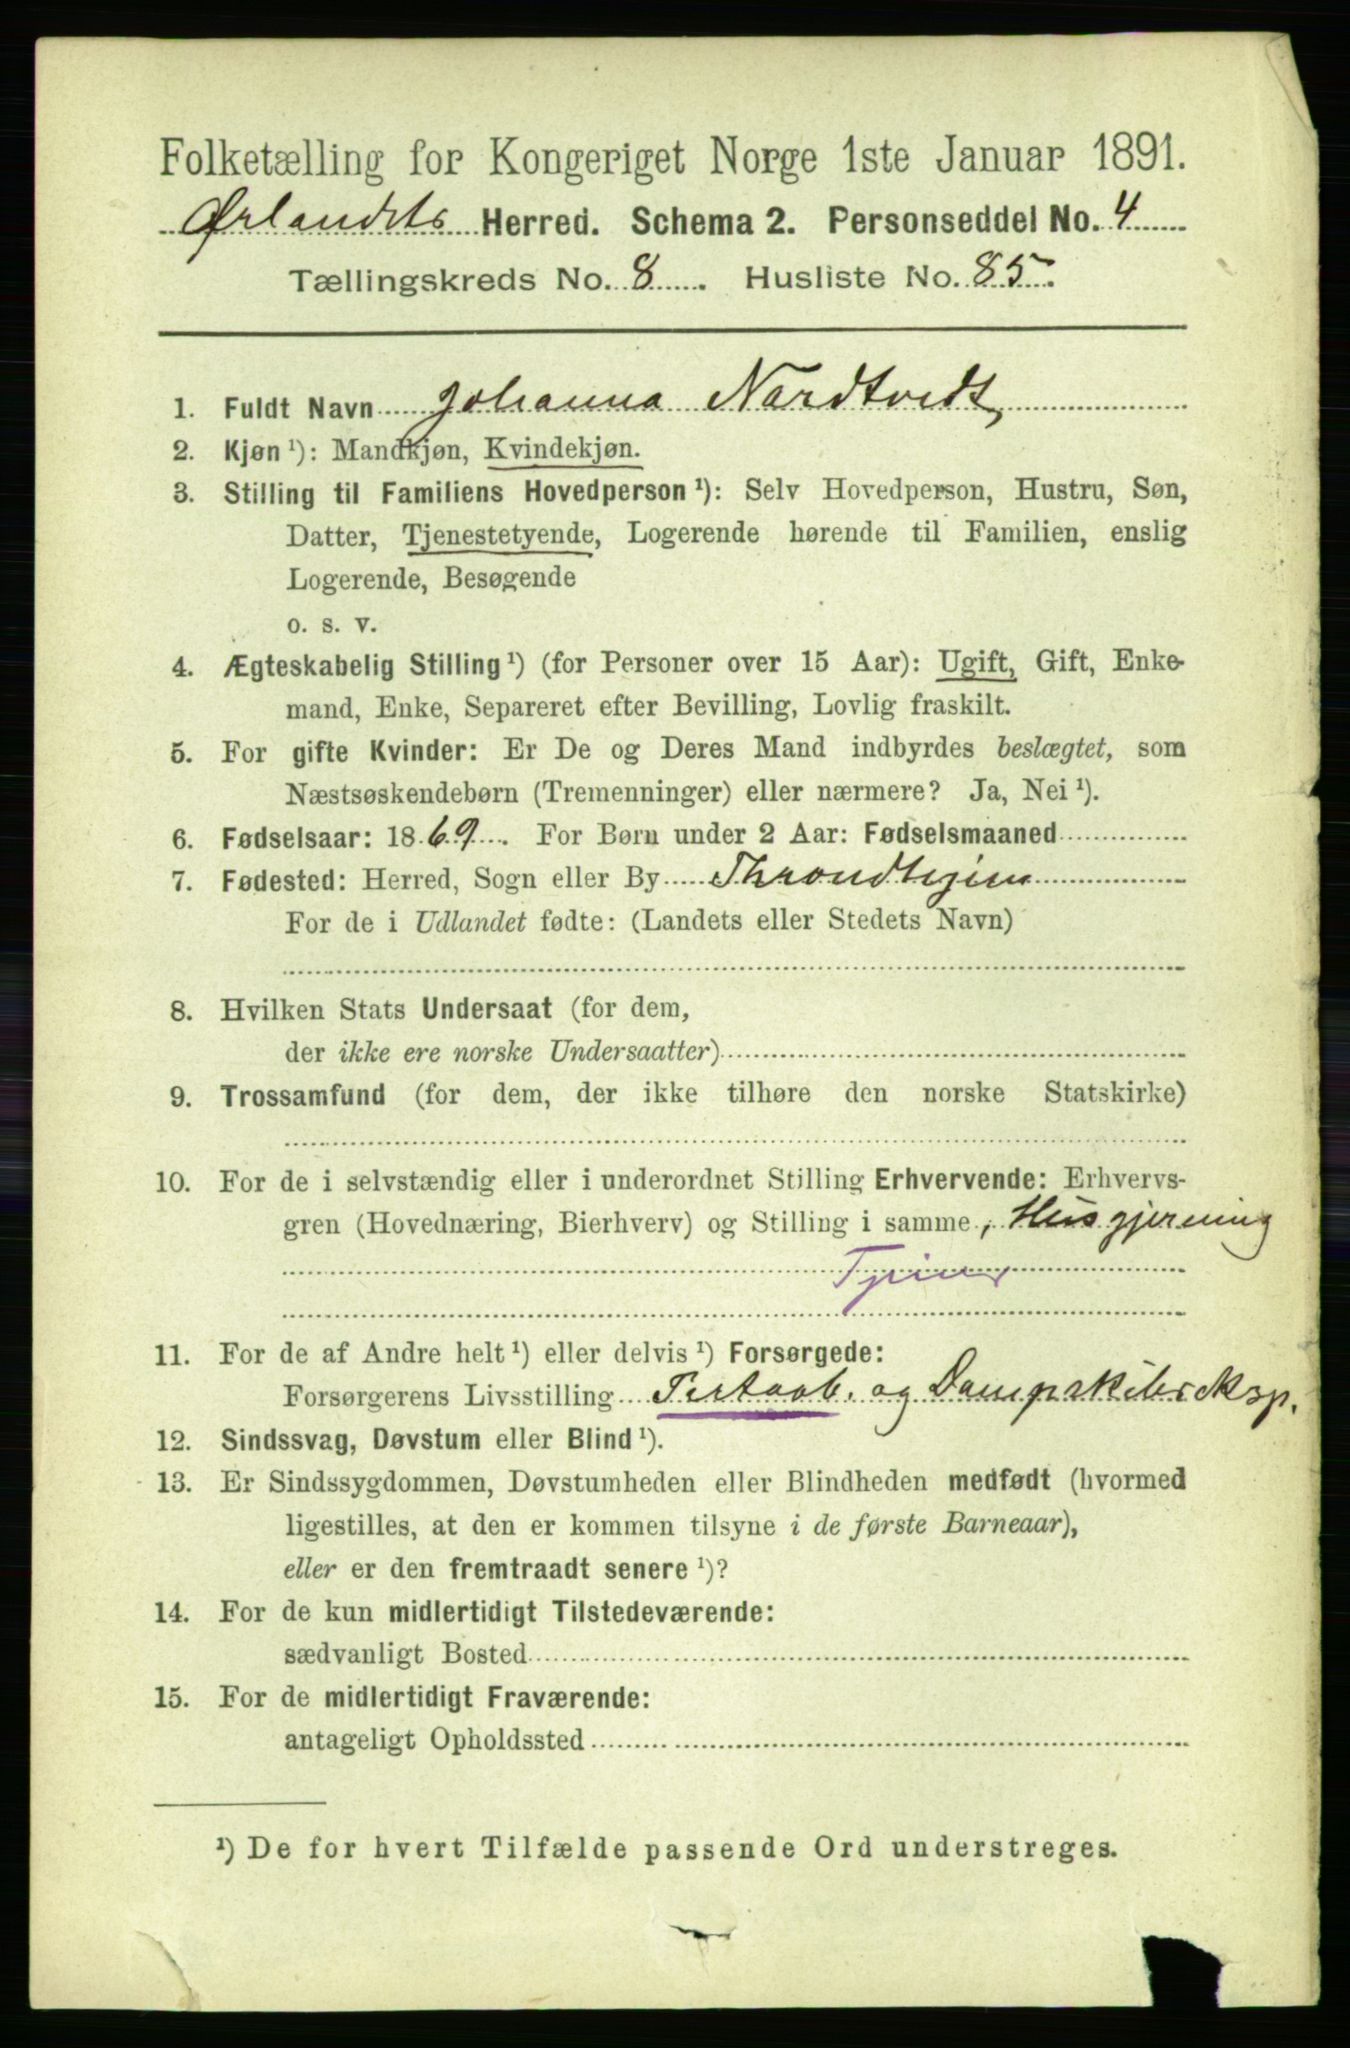 Folketælling for Kongeriget Norge 1ste Januar 1891.
Ørlandets Herred. Schema 2. Personseddel No. 4
Tællingskreds No. 8. Husliste No. 85.
1. Fuldt Navn Johanna Nordtvedt,
2. Kjøn ¹): Mandkjøn, Kvindekjøn.
3. Stilling til Familiens Hovedperson ¹): Selv Hovedperson, Hustru, Søn,
Datter, Tjenestetyende, Logerende hørende til Familien, enslig
Logerende, Besøgende
o. s. v.
4. Ægteskabelig Stilling ¹) (for Personer over 15 Aar): Ugift, Gift, Enke-
mand, Enke, Separeret efter Bevilling, Lovlig fraskilt.
5. For gifte Kvinder: Er De og Deres Mand indbyrdes beslægtet, som
Næstsøskendebørn (Tremenninger) eller nærmere? Ja, Nei ¹).
6. Fødselsaar: 1869. For Børn under 2 Aar: Fødselsmaaned
7. Fødested: Herred, Sogn eller By Throndhjem
For de i Udlandet fødte: (Landets eller Stedets Navn)
8. Hvilken Stats Undersaat (for dem,
der ikke ere norske Undersaatter)
9. Trossamfund (for dem, der ikke tilhøre den norske Statskirke)
10. For de i selvstændig eller i underordnet Stilling Erhvervende: Erhvervs-
gren (Hovednæring, Bierhverv) og Stilling i samme, Husgjerning
11. For de af Andre helt ¹) eller delvis ¹) Forsørgede:
Forsørgerens Livsstilling Postaab. og Dampskibseksp.
12. Sindssvag, Døvstum eller Blind ¹).
13. Er Sindssygdommen, Døvstumheden eller Blindheden medfødt (hvormed
ligestilles, at den er kommen tilsyne i de første Barneaar),
eller er den fremtraadt senere ¹)?
14. For de kun midlertidigt Tilstedeværende:
sædvanligt Bosted
15. For de midlertidigt Fraværende:
antageligt Opholdssted
¹) De for hvert Tilfælde passende Ord understreges.